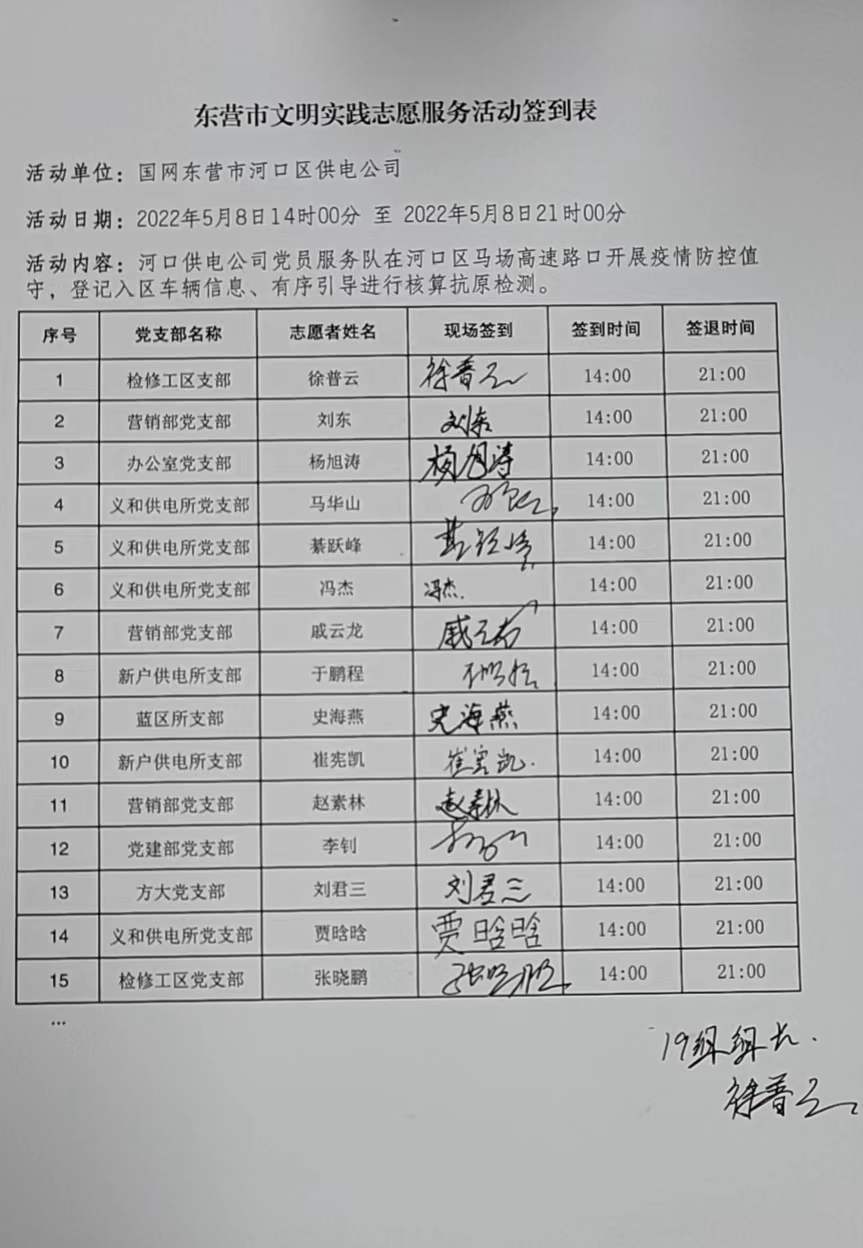 东营市文明实践志愿服务活动签到表
活动单位：国网东营市河口区供电公司
活动日期：2022年5月8日14时00分 至 2022年5月8日21时00分
活动内容：河口供电公司党员服务队在河口区马场高速路口开展疫情防控值
守，登记入区车辆信息、有序引导进行核算抗原检测。
序号 党支部名称 志愿者姓名 现场签到 签到时间 签退时间
1 检修工区支部 徐普云 徐普云 14:00 21:00
2 营销部党支部 刘东 刘东 14:00 21:00
3 办公室党支部 杨旭涛 杨旭涛 14:00 21:00
4 义和供电所党支部 马华山 14:00 21:00
5 义和供电所党支部 綦跃峰 綦跃峰 14:00 21:00
6 义和供电所党支部 冯杰 冯杰. 14:00 21:00
7 营销部党支部 戚云龙 戚云龙 14:00 21:00
8 新户供电所支部 于鹏程 14:00 21:00
9 蓝区所支部 史海燕 史海燕 14:00 21:00
10 新户供电所支部 崔宪凯 崔宪凯. 14:00 21:00
11 营销部党支部 赵素林 赵素林 14:00 21:00
12 党建部党支部 李钊 14:00 21:00
13 方大党支部 刘君三 刘君三 14:00 21:00
14 义和供电所党支部 贾晗晗 贾晗晗 14:00 21:00
15 检修工区党支部 张晓鹏 张晓鹏 14:00 21:00
...
19组组长.
徐普云